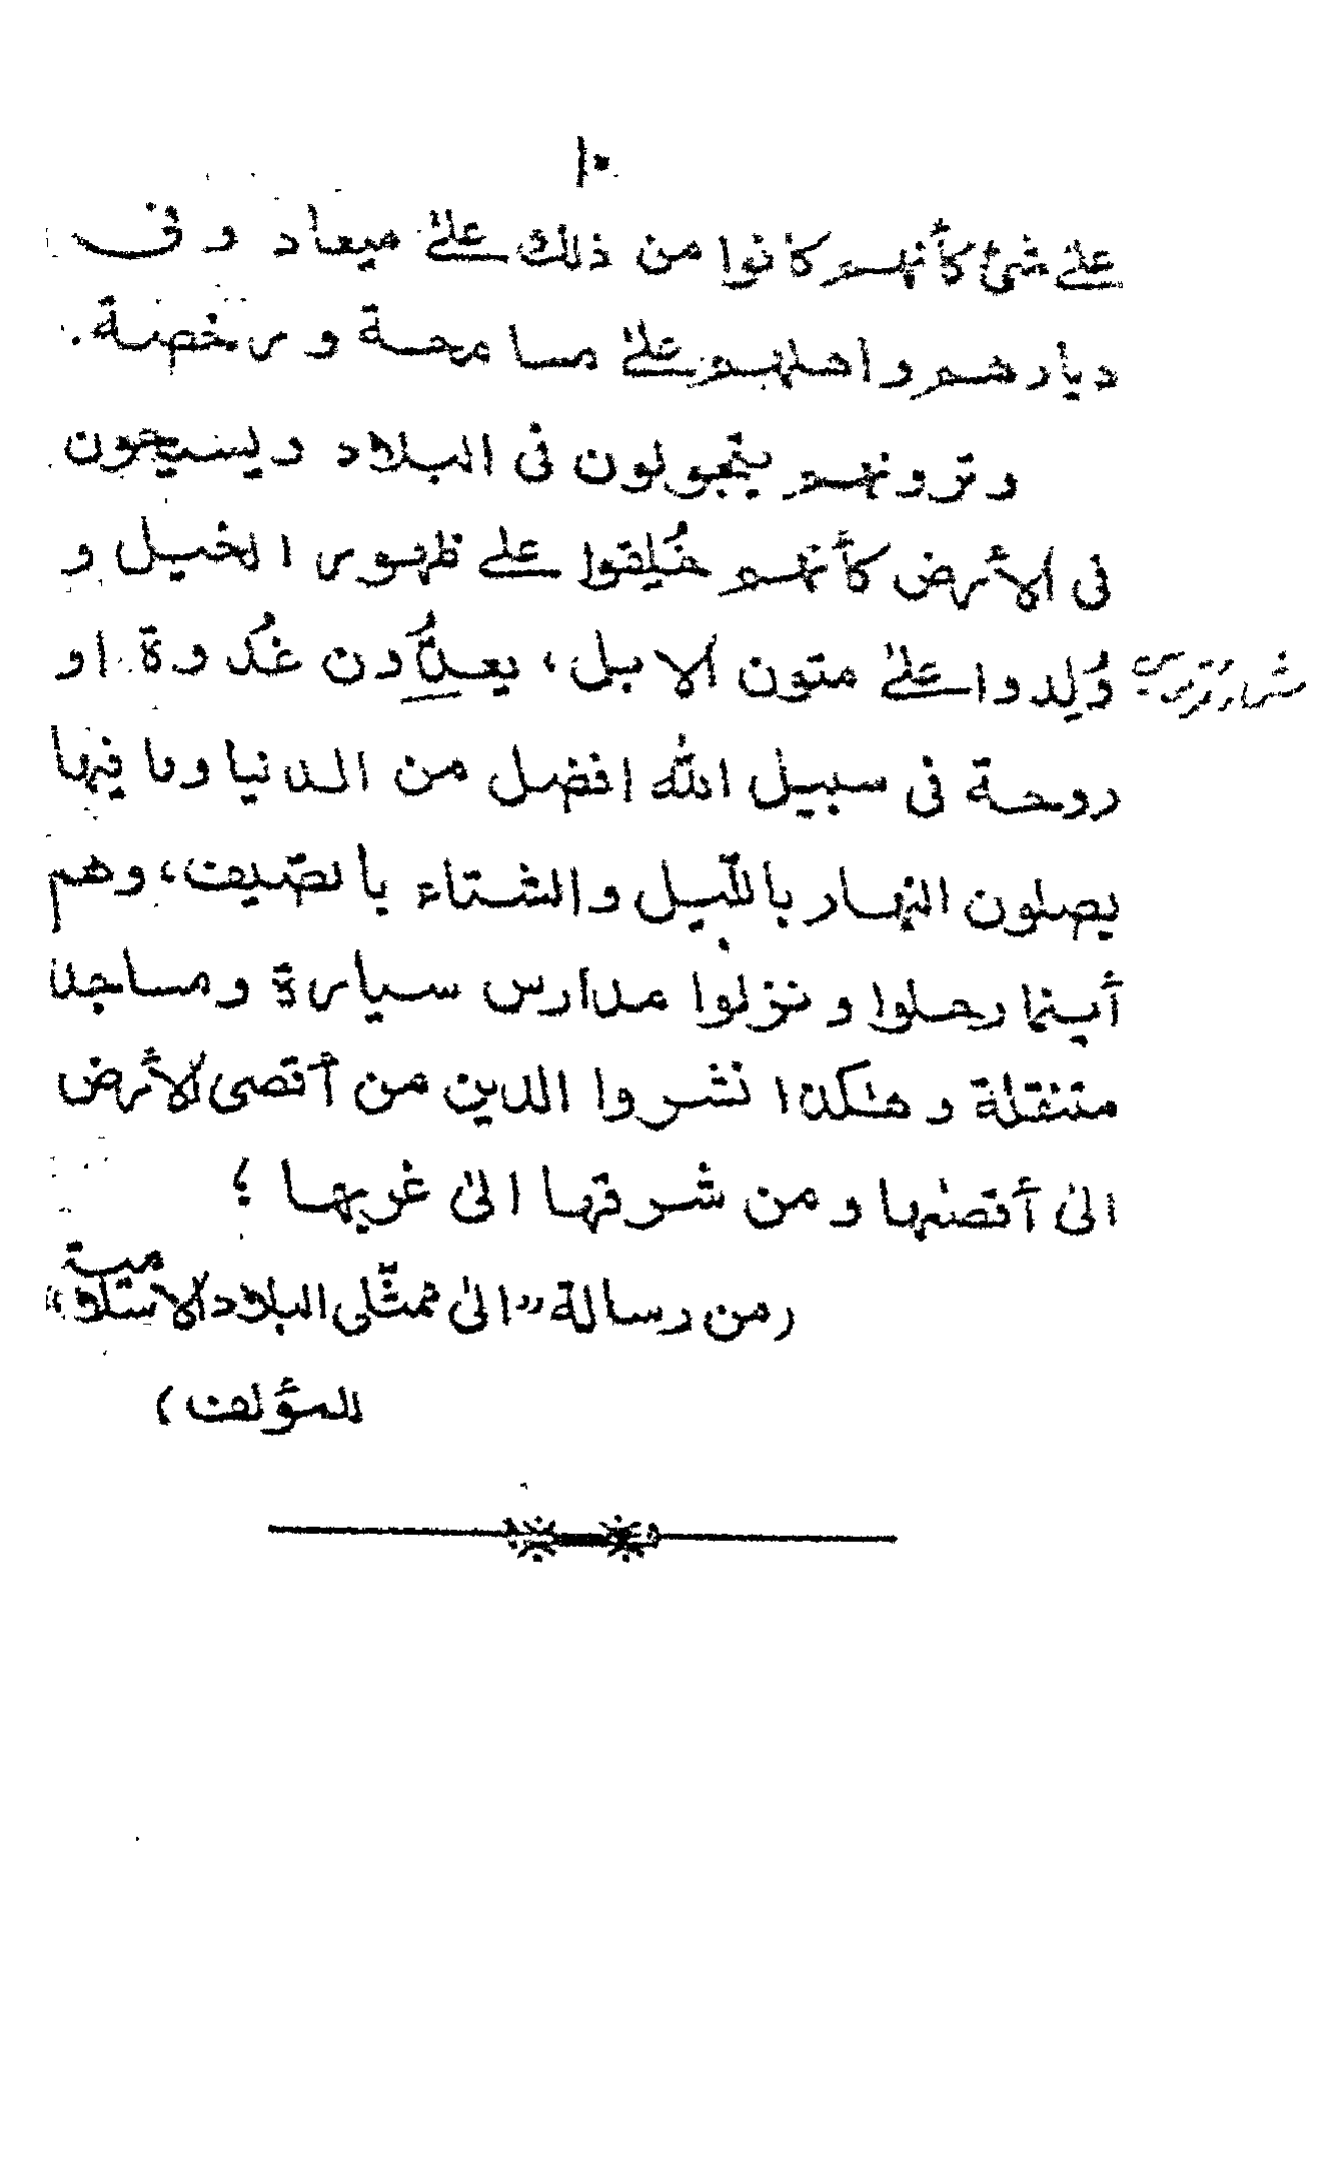 ١٠
على شئ كأنهم كانوا من ذلك على ميعاد وفى
ديارهم واهلهم على مسامحة ورخصة.
وترونهم يتجولون فى البلاد ويسيحون
فى الأرض كأنهم خُلِقوا على ظهور الخيل و
وُلِدوا على متون الابل، يعدُّون غُدوة او
روحة فى سبيل الله افضل من الدنيا وما فيها
يصلون النهار بالليل والشتاء بالصّيف، وهم
أينما رحلوا ونزلوا مدارس سيارة ومساجد
متنقلة وهٰكذا نشروا الدين من أقصى الأرض
الىٰ أقصٰها ومن شرقها الىٰ غربها ؛
(من رسالة "الىٰ ممثّلى البلاد الاسلامية"
للمؤلف)